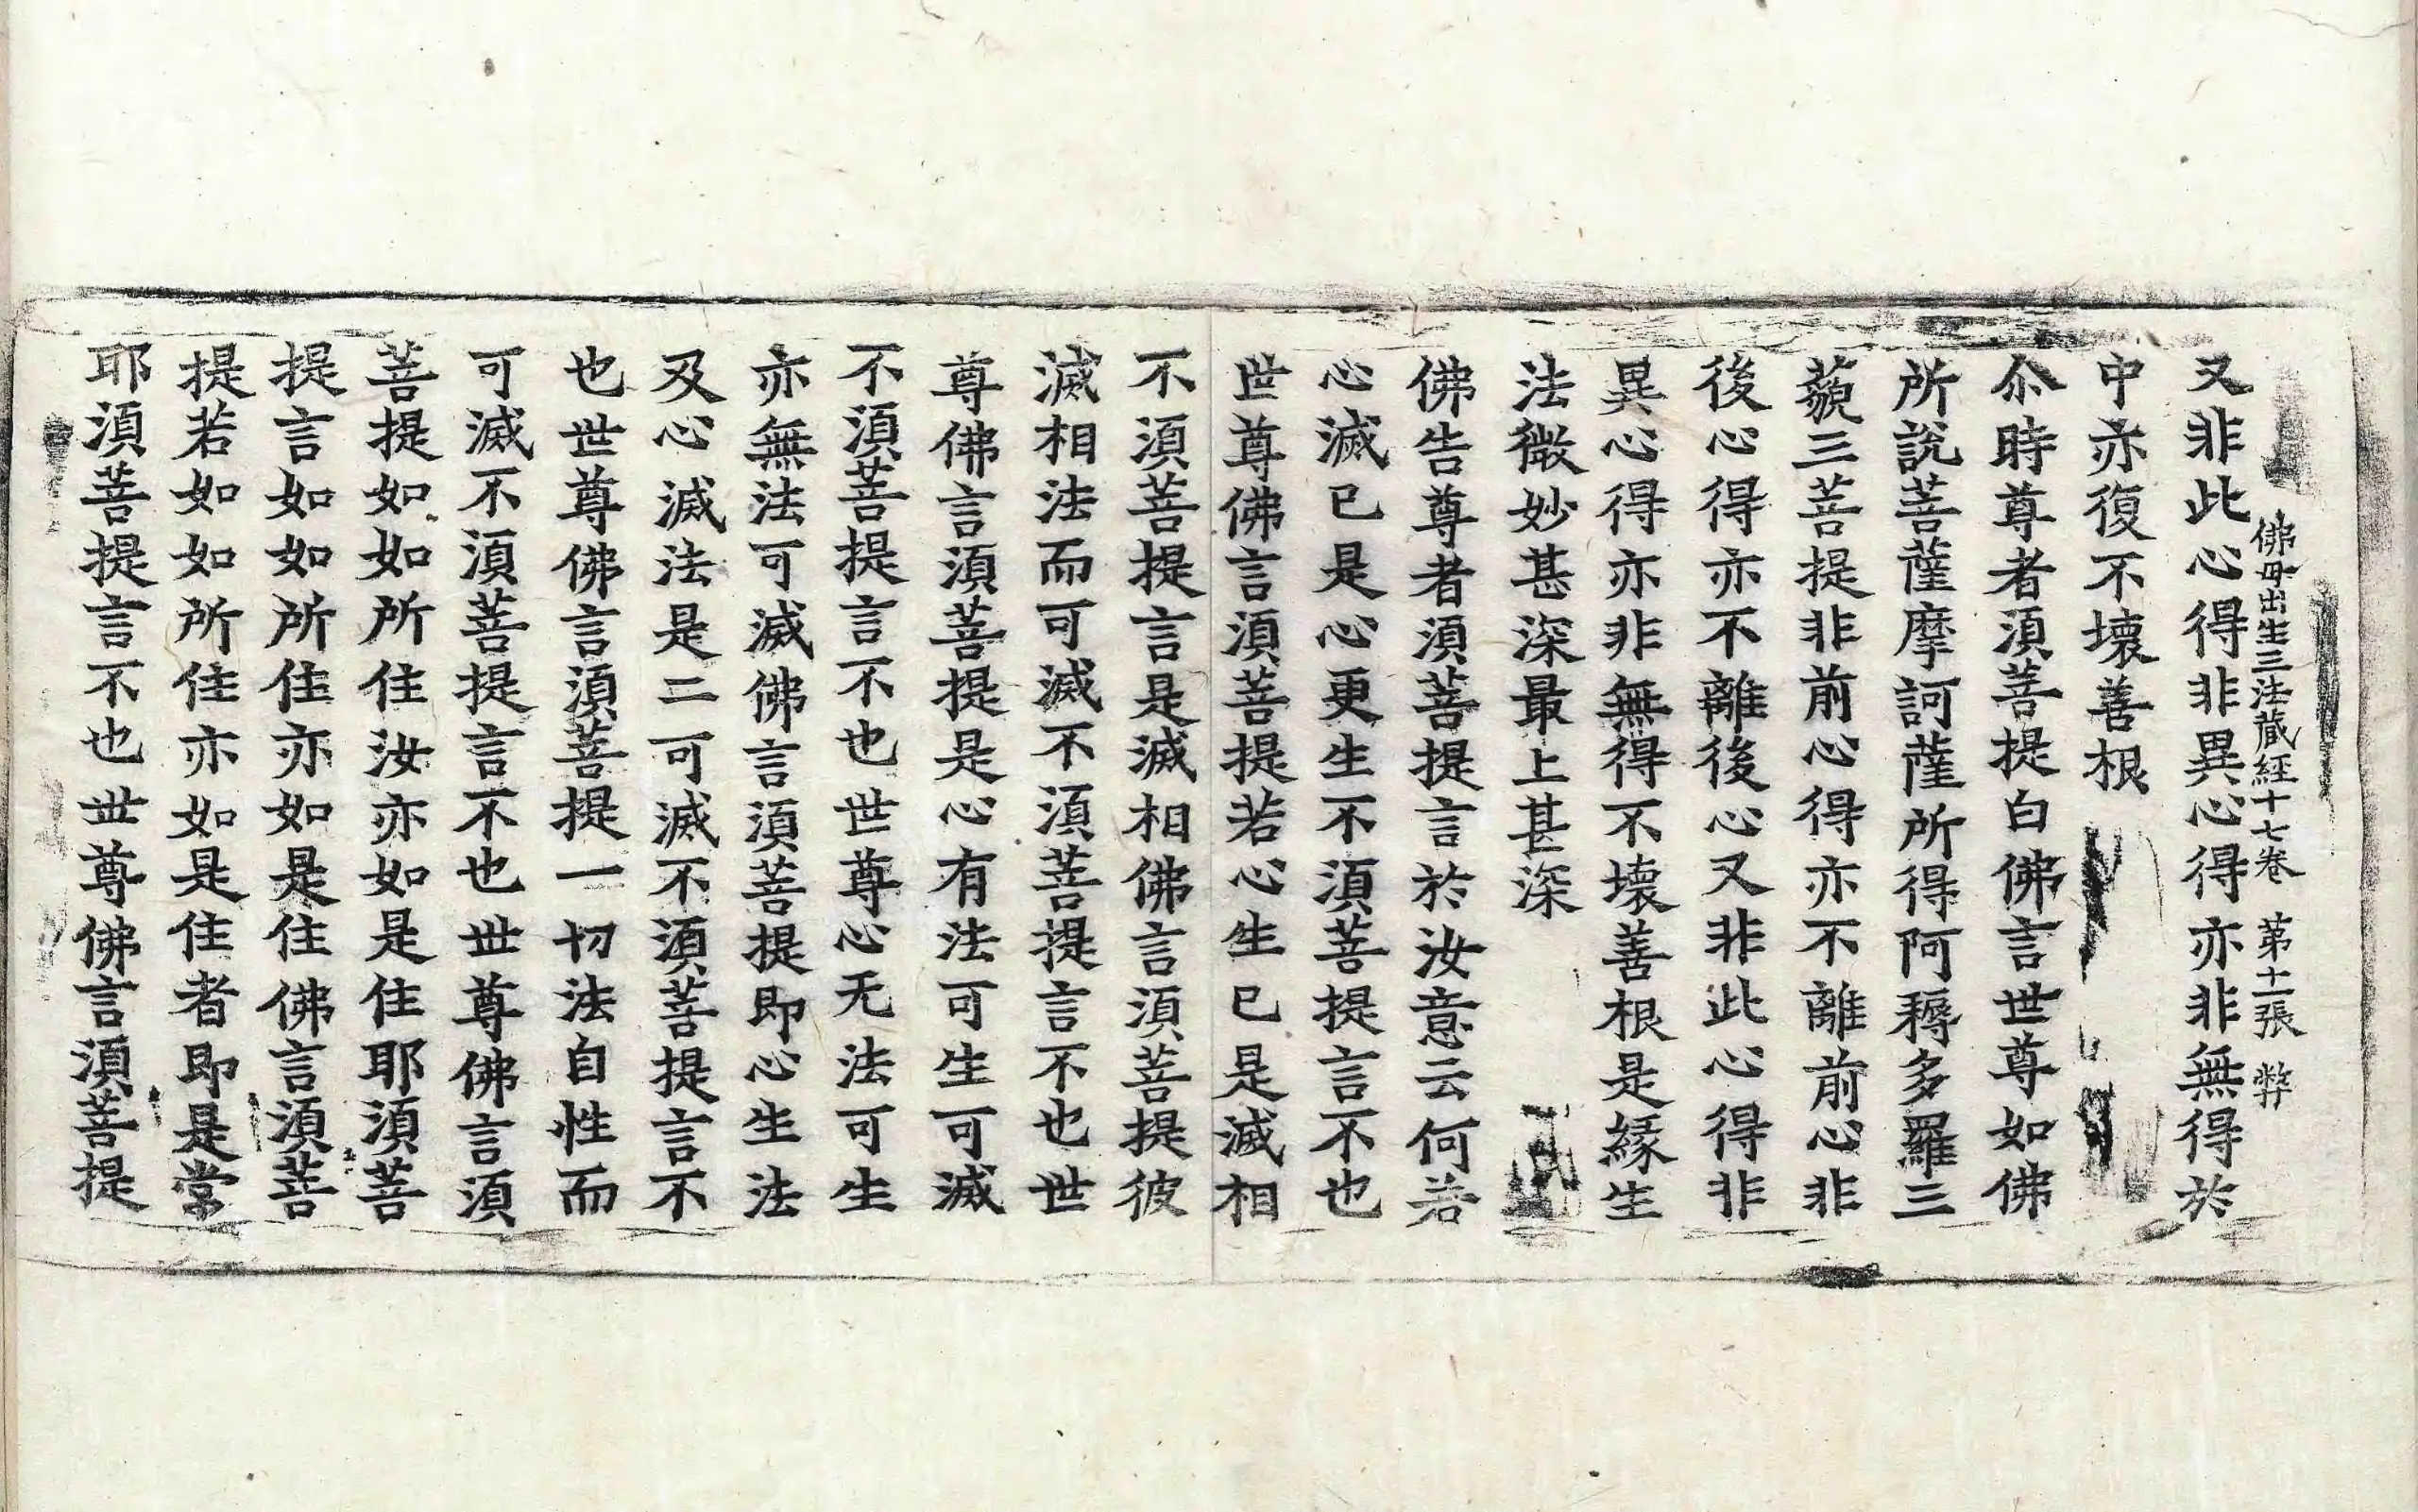 佛母出生三法藏經十七卷 第十一張 弊
又非此心得非異心得亦非無得於
中亦復不壞善根
尒時尊者湏菩提白佛言世尊如佛
所說菩薩摩訶薩所得阿耨多羅三
藐三菩提非前心得亦不離前心非
後心得亦不離後心又非此心得非
異心得亦非無得不壞善根是緣生
法微妙甚深最上甚深
佛告尊者湏菩提言於汝意云何若
心滅已是心更生不湏菩提言不也
世尊佛言湏菩提若心生已是滅相
不湏菩提言是滅相佛言湏菩提彼
滅相法而可滅不湏菩提言不也世
尊佛言湏菩提是心有法可生可滅
不湏菩提言不也世尊心无法可生
亦無法可滅佛言湏菩提即心生法
及心滅法是二可滅不湏菩提言不
也世尊佛言湏菩提一切法自性而
可滅不湏菩提言不也世尊佛言湏
菩提如如所住汝亦如是住耶湏菩
提言如如所住亦如是住佛言湏菩
提若如如所住亦如是住者即是常
耶湏菩提言不也世尊佛言湏菩提